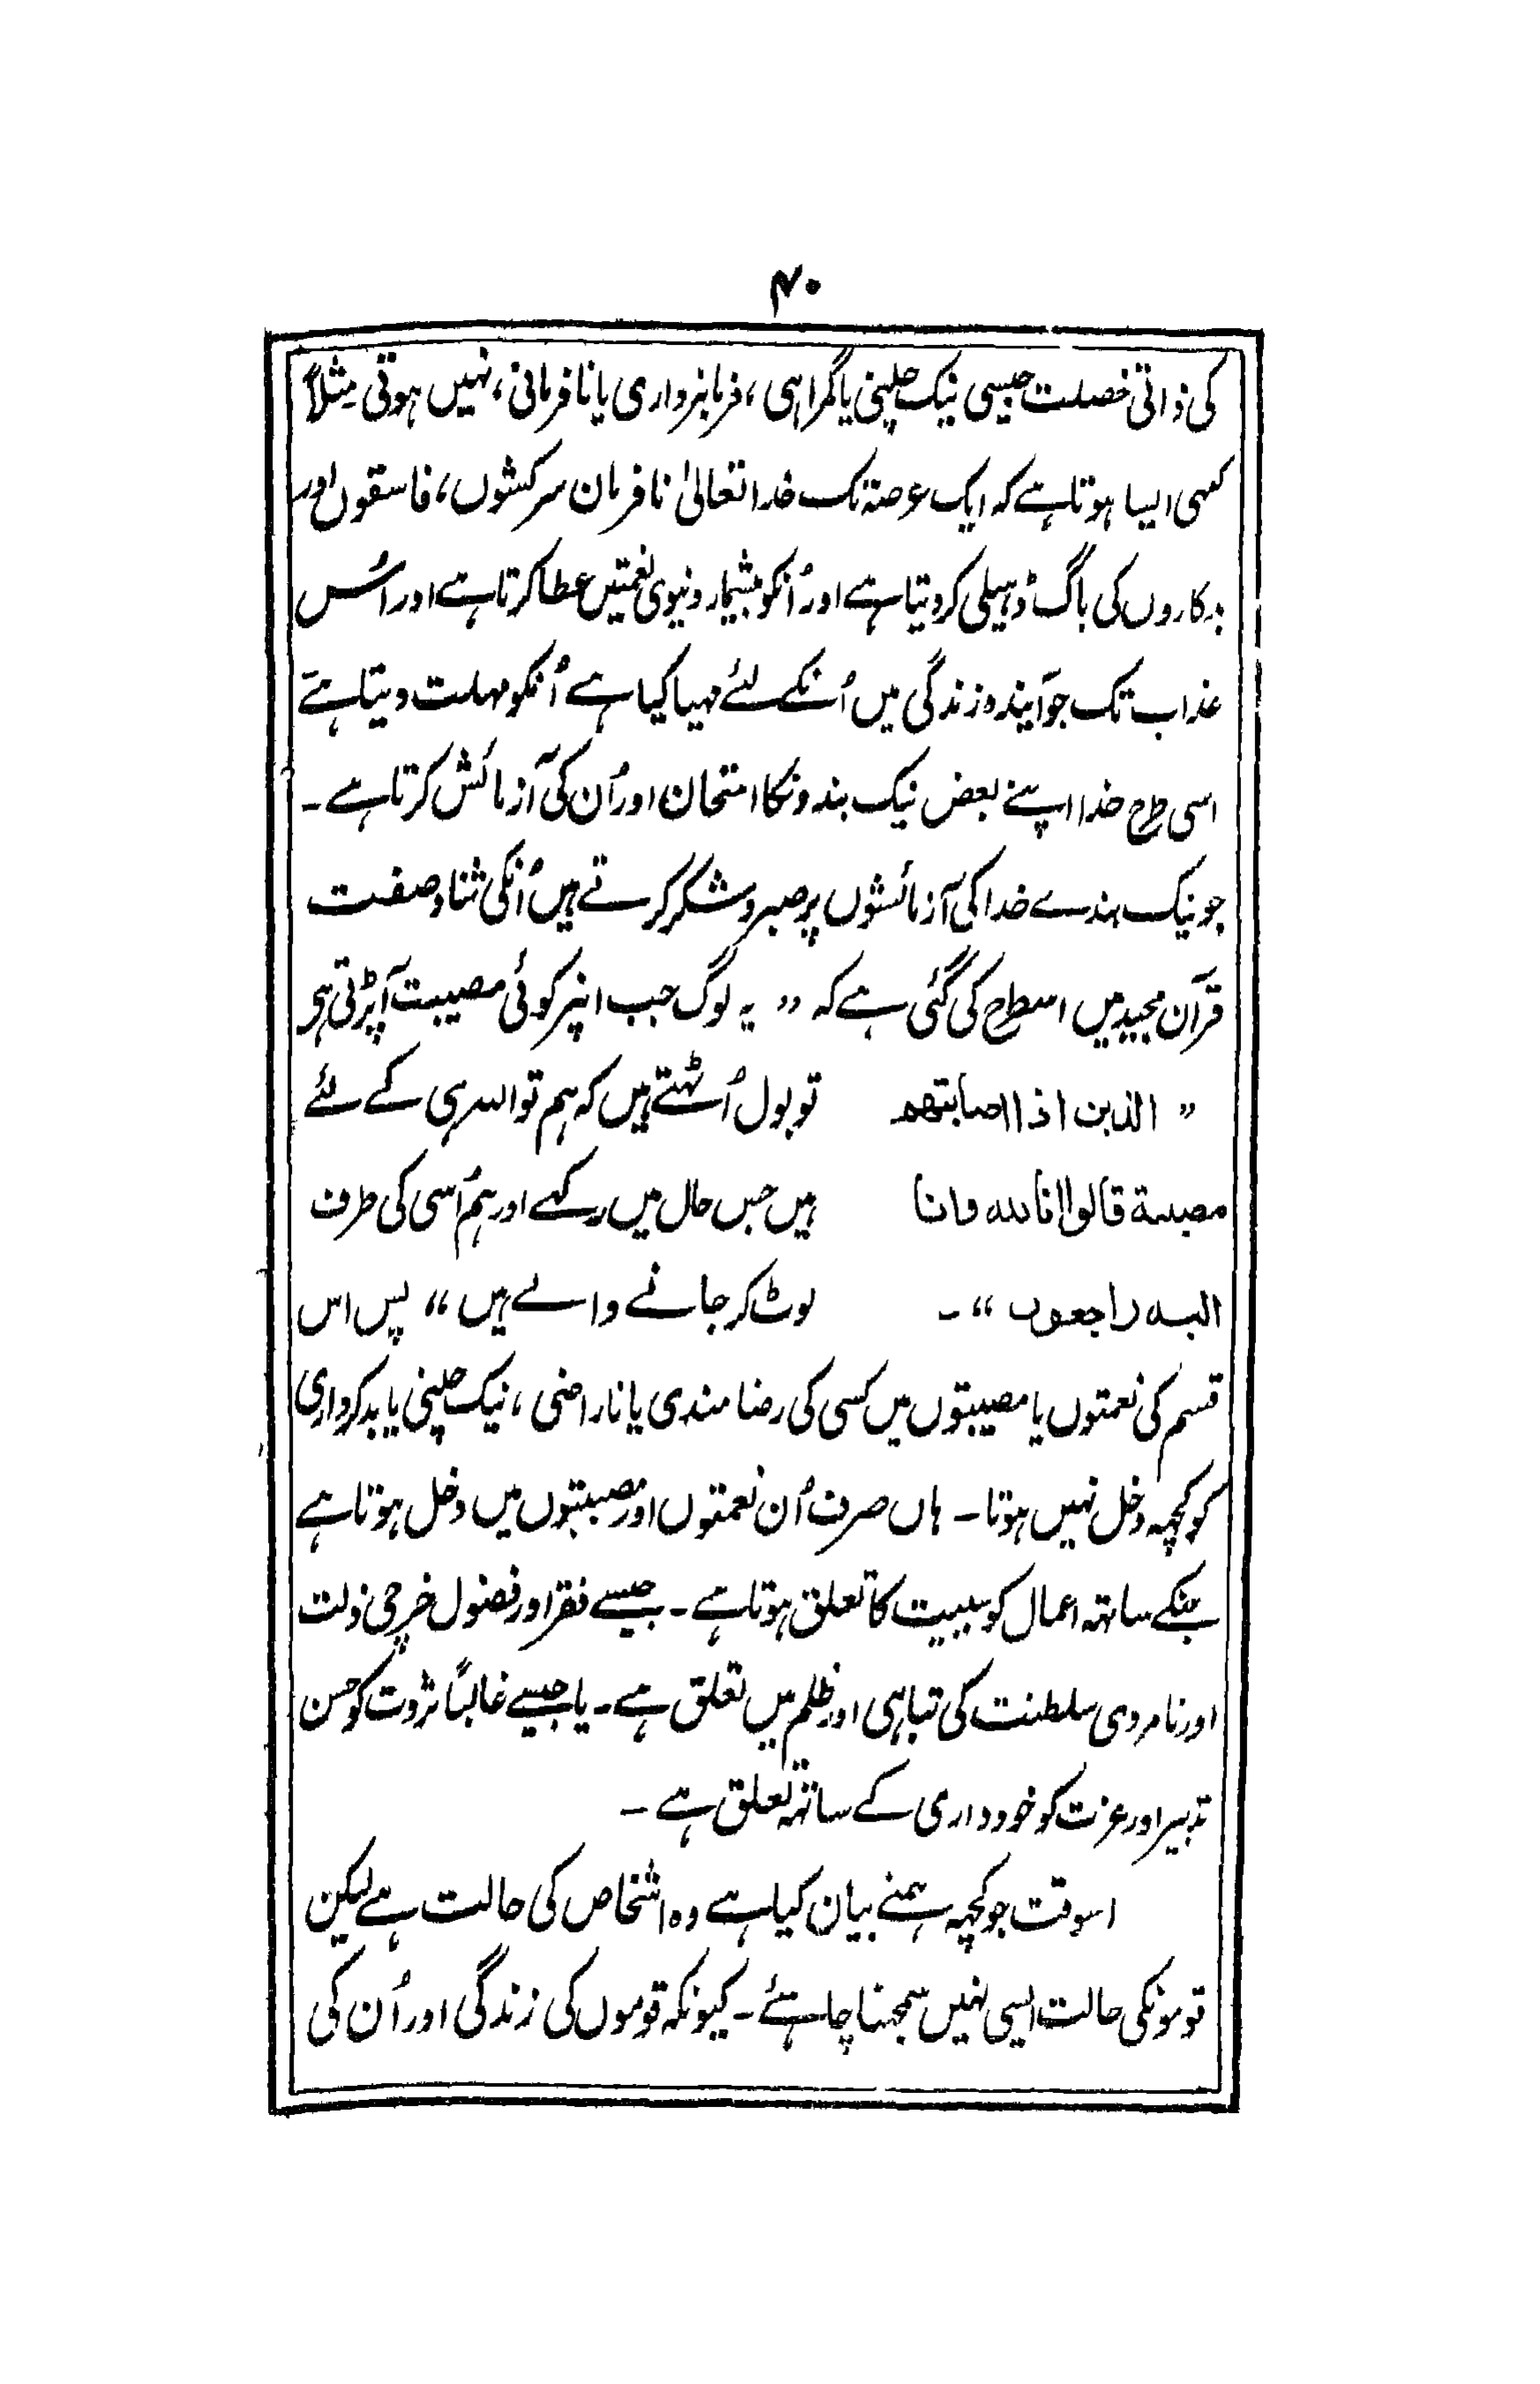 ۴۰
کی ذاتی خصلت جیسی نیک چلنی یا گمراہی، فرمانبرداری یا نافرمانی، نہیں ہوتی مثلاً
کسی ایسا ہوتا ہے کہ ایک عرصہ تک خدا تعالیٰ نافرمان سرکشوں، فاسقوں اور
بدکاروں کی باگ ڈہیلی کر دیتا ہے اور اُنکو بیشمار دنیوی نعمتیں عطا کرتا ہے اور اُس
عذاب تک جو آیندہ زندگی میں اُنکے لئے مہیا کیا ہے اُنکو مہلت دیتا ہے
اسی طرح خدا اپنے بعض نیک بندونکا امتحان اور اُن کی آزمائش کرتا ہے ۔
جو نیک بندے خدا کی آزمائشوں پر صبر و شکر کرتے ہیں اُنکی ثنا و صفت
قرآن مجید میں اسطرح کی گئی ہے کہ ” یہ لوگ جب انپر کوئی مصیبت آپڑتی ہی
” الذین اذا اصابتھم تو بول اُٹہتے ہیں کہ ہم تو اللہ ہی کے لئے
مصیبة قالوا انا لله وانا ہیں جس حال میں رکہے اور ہم اُسی کی طرف
الیه راجعون “ ۔ لوٹ کر جانے والے ہیں “ پس اس
قسم کی نعمتوں یا مصیبتوں میں کسی کی رضامندی یا ناراضی ، نیک چلنی یا بدکرداری
کو کچہہ دخل نہیں ہوتا ۔ ہاں صرف اُن نعمتوں اور مصیبتوں میں دخل ہوتا ہے
جنکے ساتہہ اعمال کو سببیت کا تعلق ہوتا ہے ۔ جیسے فقر اور فضول خرچی ذلت
اور نامردی سلطنت کی تباہی اور ظلم میں تعلق ہے ۔ یا جیسے غالباً ثروت کو حسن
تدبیر اور عزت کو خودداری کے ساتہہ تعلق ہے ۔
اسوقت جو کچہہ ہمنے بیان کیا ہے وہ اشخاص کی حالت ہے لیکن
قومونکی حالت ایسی نہیں سمجہنا چاہئے ۔ کیونکہ قوموں کی زندگی اور اُن کی